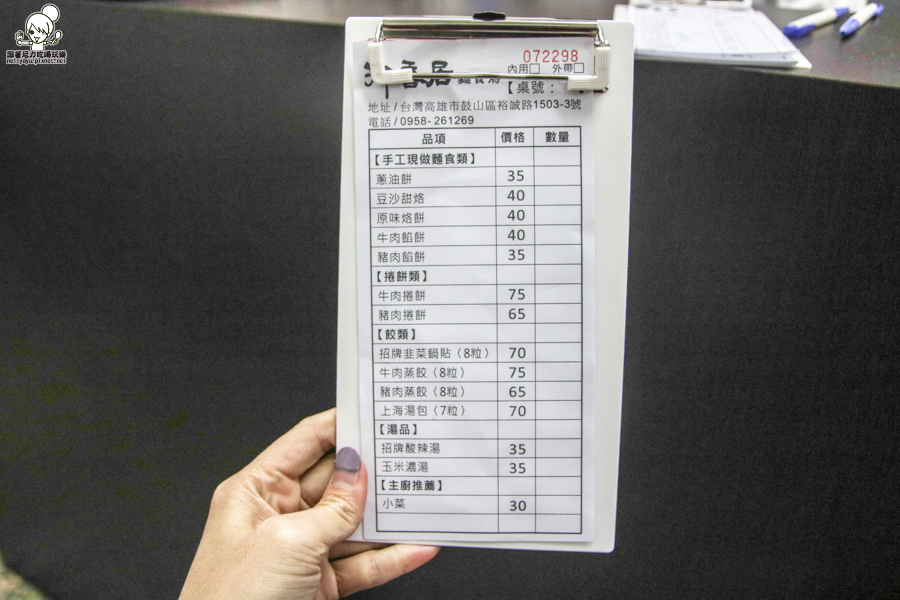 跟著尼力吃喝玩樂
nellydyu.pixnet.net
072298
香居 麵食館
內用□ 外帶□
【桌號：
地址/台灣高雄市鼓山區裕誠路1503-3號
電話/0958-261269
品項 價格 數量
【手工現做麵食類】
蔥油餅 35
豆沙甜烙 40
原味烙餅 40
牛肉餡餅 40
豬肉餡餅 35
【捲餅類】
牛肉捲餅 75
豬肉捲餅 65
【餃類】
招牌韭菜鍋貼（8粒） 70
牛肉蒸餃（8粒） 75
豬肉蒸餃（8粒） 65
上海湯包（7粒） 70
【湯品】
招牌酸辣湯 35
玉米濃湯 35
【主廚推薦】
小菜 30